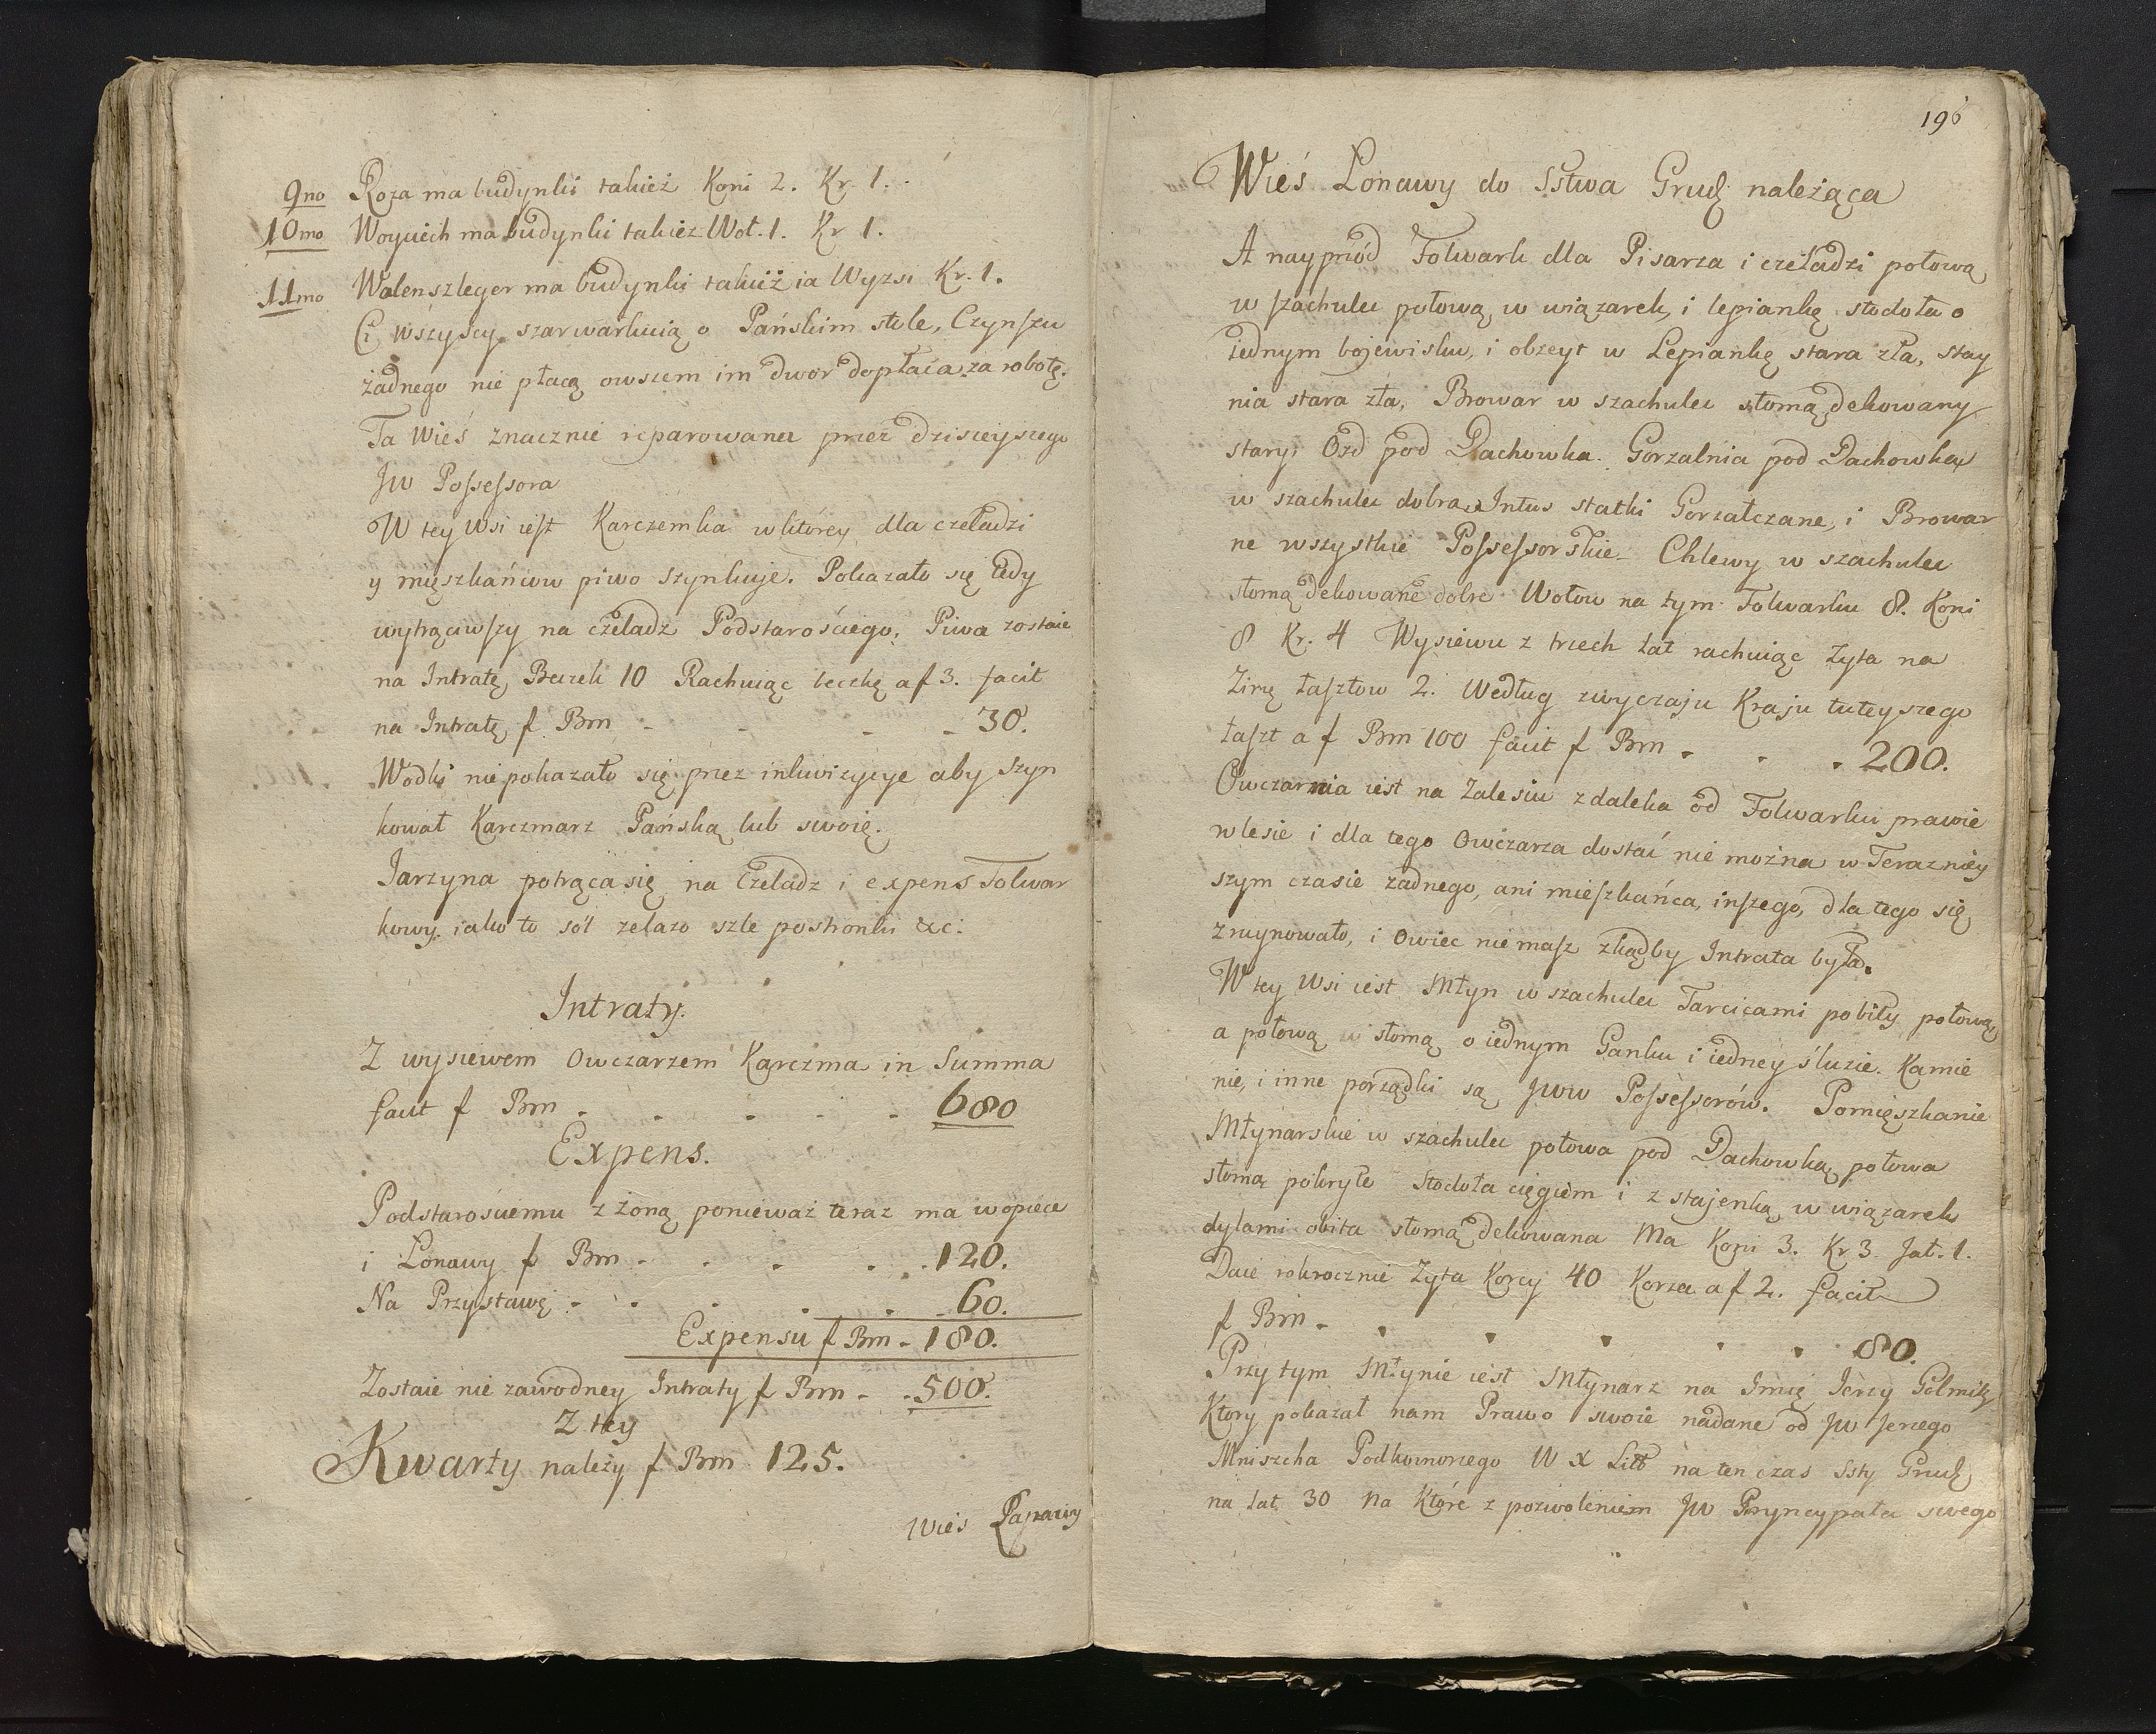 9no Roza ma budynki takież Koni 2. Kr. 1.
10mo Woyciech ma budynki takież Woł. 1. Kr 1.
11mo Walenszleger ma budynki takież ia Wyzsi Kr. 1.
Ci wszyscy szarwarkuią o Pańskim stole, Czynszu
żadnego nie płacą owszem im dwor dopłaca za robotę.
Ta Wieś znacznie reparowana przez dzisieyszego
Jw Possessora
W tey Wsi iest Karczemka w którey dla czeladzi
y mięszkańcow piwo szynkuje. Pokazało się tedy
wytrąciwszy na czeladz Podstarościego, Piwa zostaie
na Intratę Beczek 10 Rachuiąc beczkę a f 3. facit
na Intratę f Bm - - - - 30.
Wodki nie pokazało się przez inkwizycye aby szyn
kował Karczmarz Pańską lub swoię.
Jarzyna potrąca się na Czeladz i expens Folwar
kowy. iako to sól zelazo szle postronki &c:
Intraty.
Z wysiewem Owczarzem Karczma in Summa
facit f Bm - - - - - 680
Expens.
Podstarościemu z żoną ponieważ teraz ma w opiece
i Lonawy f Bm - - - - 120.
Na Przystawę - - - - - 60.
Expensu f Bm - 180.
Zostaie nie zawodney Intraty f Bm - - 500.
Z tey
Kwarty należy f Bm 125.
Wieś
196
Wieś Lonawy do Sstwa Grudz należąca
A nayprzód Folwark dla Pisarza i czeladzi połową
w szachulec połową w wiązarek, i lepiankę stodoła o
iednym bojewisku, i obzeyt w Lepiankę stara zła, stay
nia stara zła, Browar w szachulec słomą dekowany
stary. Ozd pod Dachowka. Gorzalnia pod Dachowką
w szachulec dobra, Intus statki Gorzałczane, i Browar
ne wszystkie Possessorskie - Chlewy w szachulec
słomą dekowane dobre Wołow na tym Folwarku 8. Koni
8 Kr. 4 Wysiewu z trzech lat rachuiąc Zyta na
Zimę łasztow 2. Według zwyczaju Kraju tuteyszego
łaszt a f Bm 100 facit f Bm - - - 200.
Owczarnia iest na Zalesiu zdaleka od Folwarku prawie
w lesie i dla tego Owczarza dostać nie można w Terazniey
szym czasie zadnego, ani mieszkańca, inszego, dla tego się
zruynowało, i Owiec nie masz zkądby Intrata była.
W tey Wsi iest Młyn w szachulec Tarcicami pobity połową
a połową słomą o iednym Ganku i iedney śluzie. Kamie
nie, i inne porządki są Jww Possessorów. Pomięszkanie
Młynarskie w szachulec połowa pod Dachowką połowa
słomą pokryte Stodoła cięgiem i z stajenką w wiązarek
dylami obita słomą dekowana Ma Koni 3. Kr 3. Jał. 1.
Daie rokrocznie Zyta Korcy 40 Korzec a f 2. facit
f Bm - - - - - - 80.
Przy tym Młynie iest Młynarz na Imię Jerzy
Ktory pokazał nam Prawo swoie nadane od Jw Jerzego
Mniszcha Podkomorzego W X Litt na ten czas Ssty Grudz
na lat 30 Na Które z pozwoleniem Jw Pryncypała swego